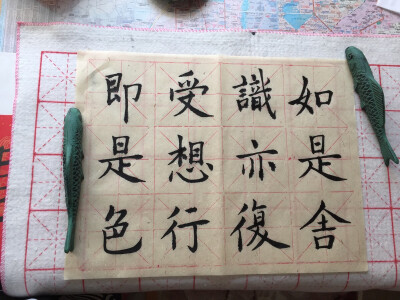 即是色
受想行
識亦復
如是舍